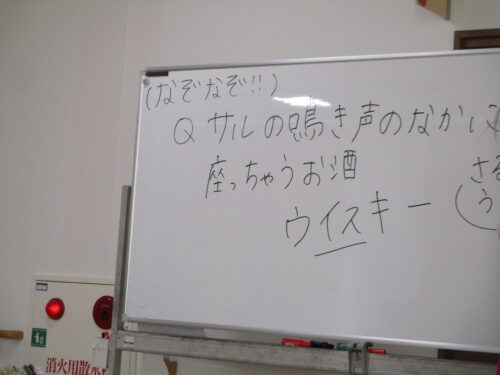 (なぞなぞ!!)
Q サルの鳴き声のなかに
座っちゃうお酒
さる
ウイスキー
(う
消火用散水